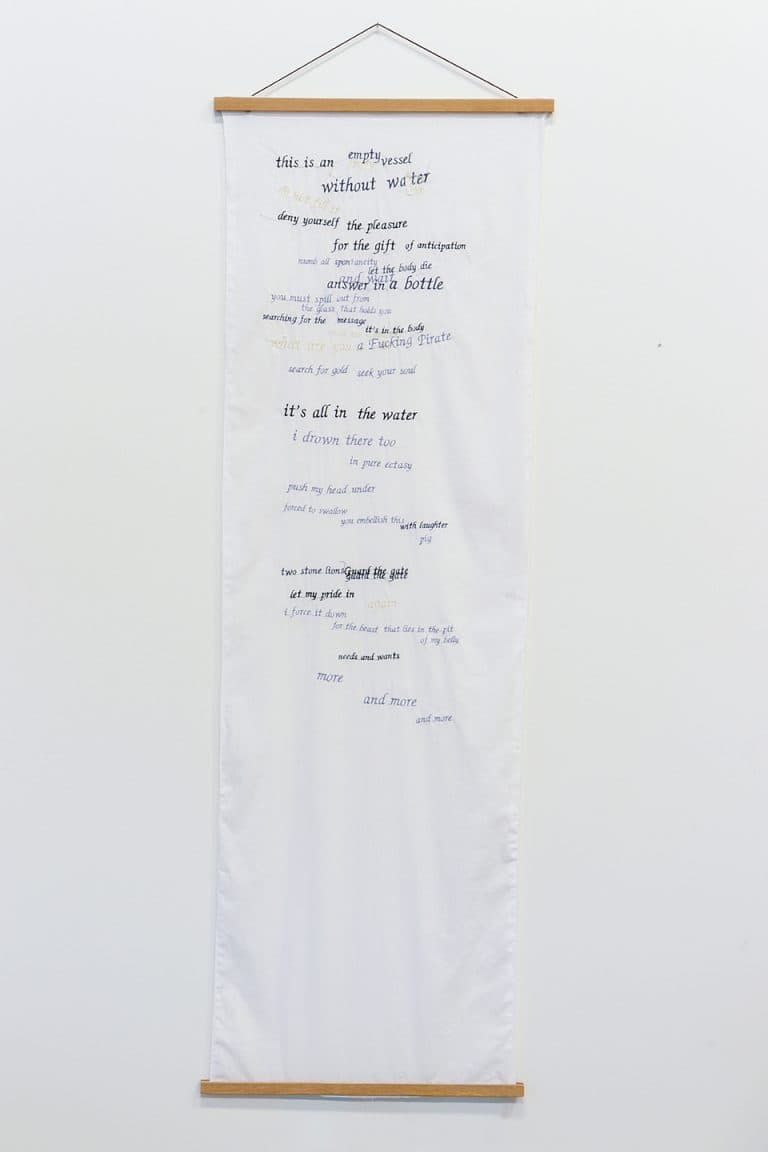 this is an empty vessel
without water
do not fill it
deny yourself the pleasure
for the gift of anticipation
numb all spontaneity
let the body die
and wait
answer in a bottle
you must spill out from
the glass that holds you
searching for the message
it's in the body
what are you a Fucking Pirate
search for gold seek your soul
it's all in the water
i drown there too
in pure ectasy
push my head under
forced to swallow
you embellish this with laughter
pig
two stone lions Guard the gate
guard the gate
let my pride in
again
i force it down
for the beast that lies in the pit
of my belly
needs and wants
more
and more
and more